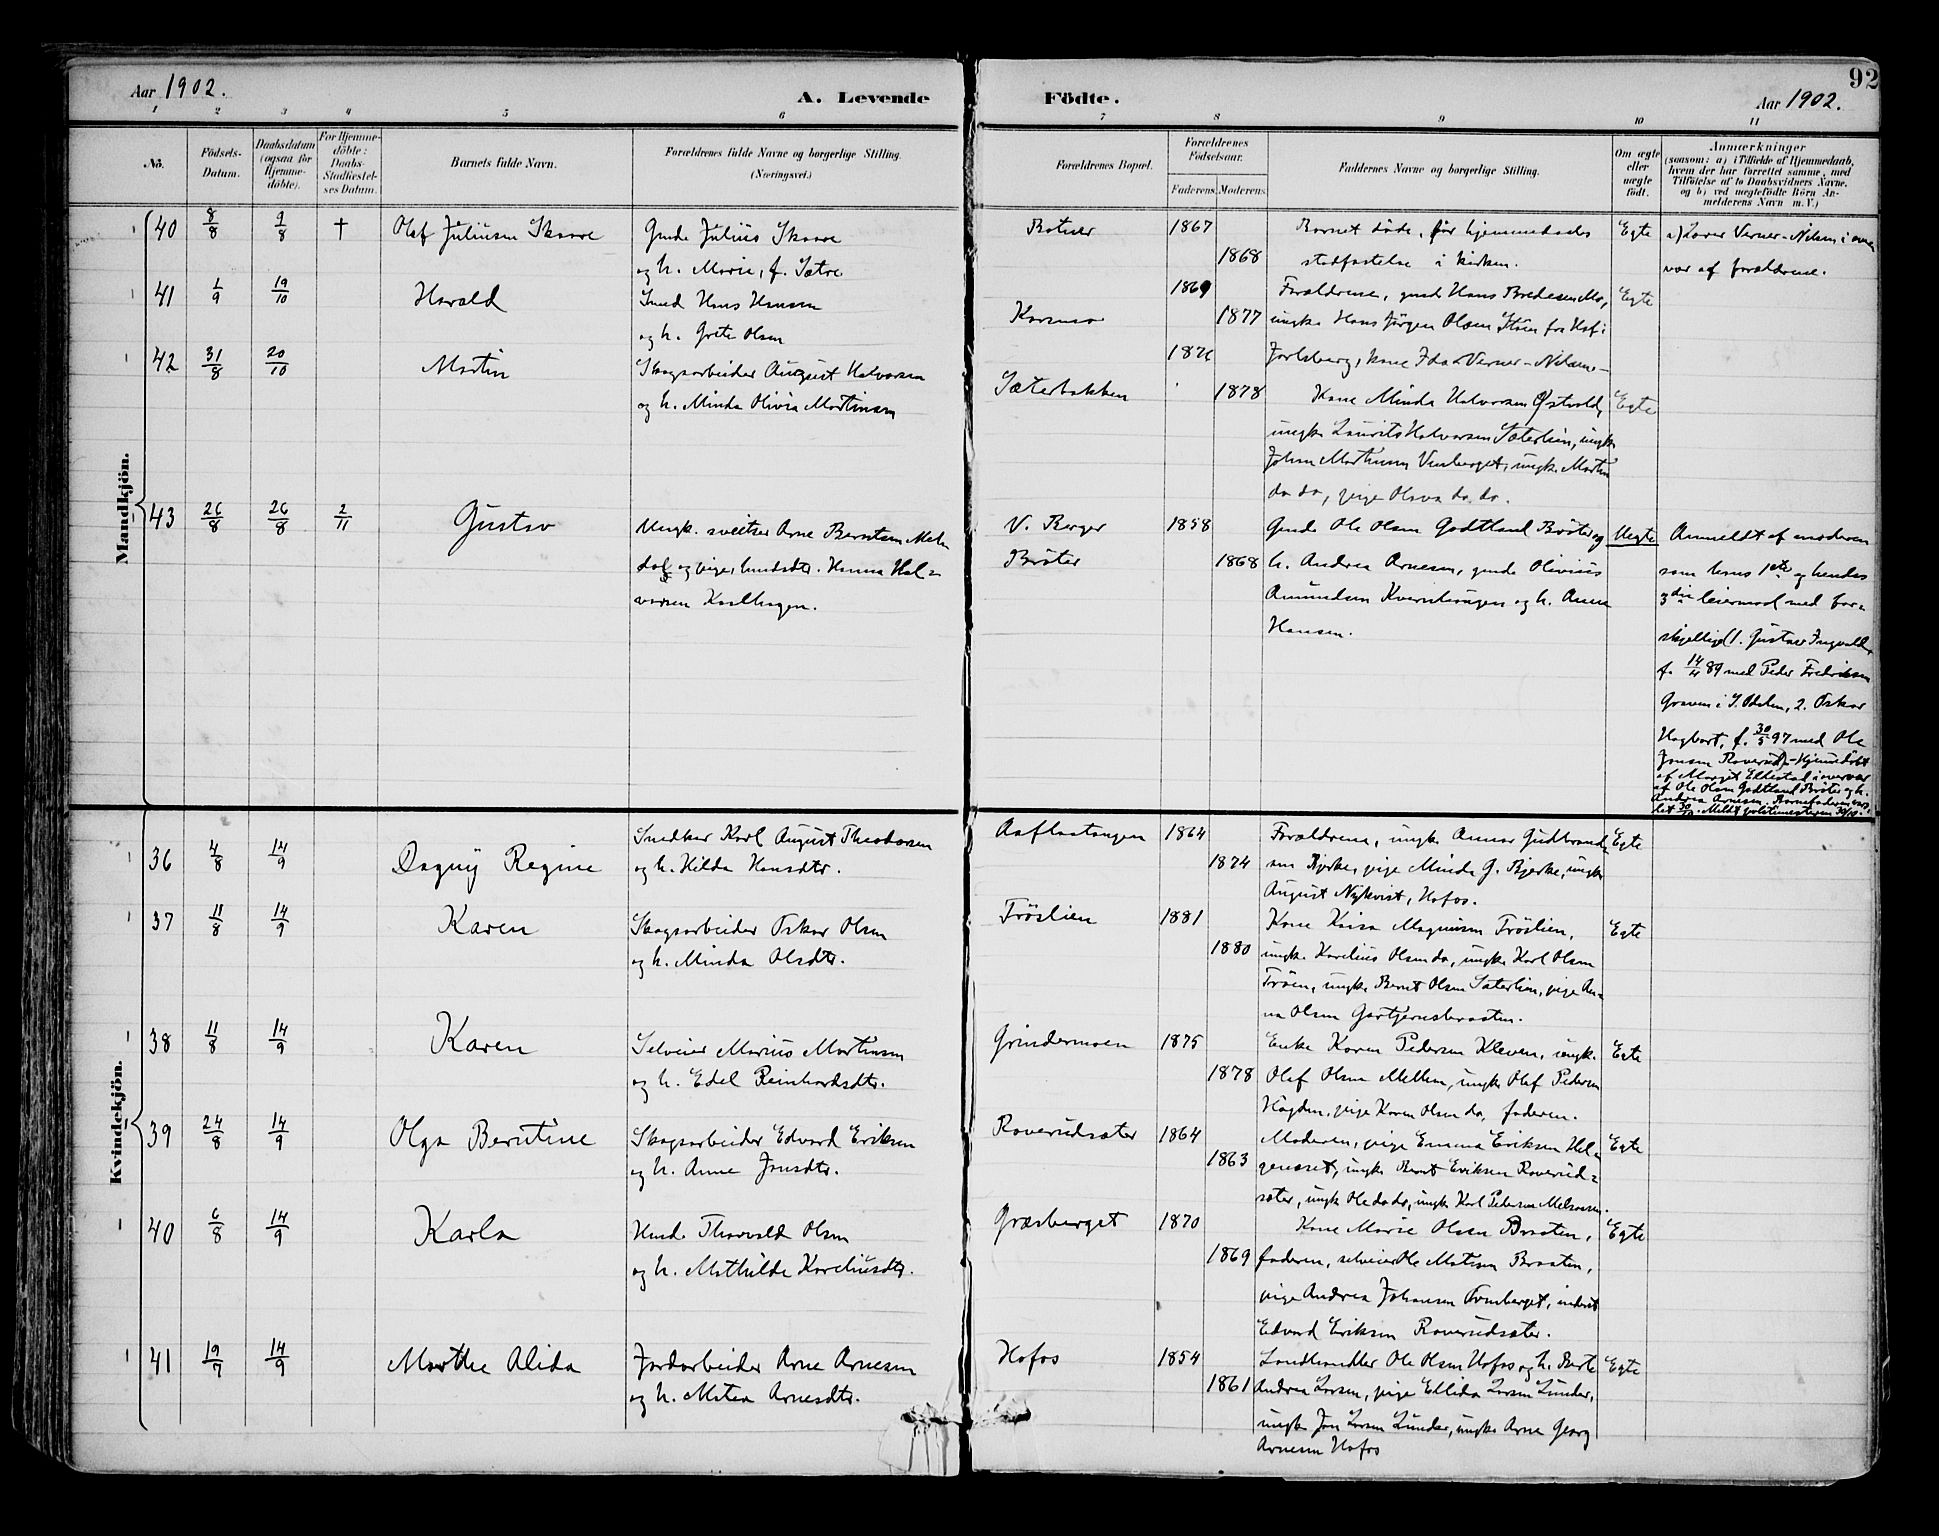 92
Aar 1902.
A. Levende
Födte.
Aar 1902.
1 2 3 4 5 6 7 8 9 10 11
No.
Födsels-
Datum.
Daabsdatum
(ogsaa for
Hjemme-
döbte).
For Hjemme-
döbte:
Daabs-
Stadfæstel-
ses Datum.
Barnets fulde Navn.
Forældrenes fulde Navne og borgerlige Stilling.
(Næringsvei.)
Forældrenes Bopæl.
Forældrenes
Födselsaar.
Faderens. Moderens.
Faddernes Navne og borgerlige Stilling.
Om ægte
eller
uægte
født.
Anmærkninger
(saasom: a) i Tilfælde af Hjemmedaab,
hvem der har forrettet samme, med
Tilföielse af to Daabsvidners Navne,
og b) ved uegtefödte Börn An-
melderens Navn m. V.)
Mandkjön.
40 8/8 9/8 † Olaf Juliusen Skaare
Gmd. Julius Skaare
og h. Marie, f. Sætre
1867
1868
Barnet döde, för hjemmedaabs
stadfæstelse i kirken.
Egte
a) Lærer Verner-Nilsen i over
vær af forældrene.
41 1/9 19/10 Harald
Smed Hans Hansen
og h. Grete Olsen
1869
1877
Forældrene, gmd. Hans Bredesen Mo,
ungk. Hans Jörgen Olsen fra Hof i
Jarlsberg, kone Ida Verner-Nilsen-
Egte
42 31/8 20/10 Martin
Skogsarbeider August Halvorsen
og h. Minda Olivia Martinsen
Sæterbakken
1878
Kone Minda Halvorsen Østvold,
ungk. Laurits Halvorsen Sæterlien, ungk.
Johan Martinsen Vesleberget, ungk. Martin
do do, pige Olava do do.
Egte
43 26/8 26/8 2/11 Gustav
Ungk. sveitser Arne Berntsen
og pige, husmdsdtr. Hanna Hal-
vorsen
V. Berger
Bröter
1858
1868
Gmd. Ole Olsen Godtland Bröter og
h. Andrea Arnesen, gmd. Olivius
Amundsen Kvernhaugen og h. Anna
Hansen.
Uegte
Anmeldt af moderen
som hans 1ste og hendes
3die leiermaal med for-
skjellige (1. Gustav Ingvald,
f. 14/4 89 med Peder Fredriksen
Graven i S. Odalen, 2. Oskar
Hagbart, f. 30/5 97 med Ole
Jonsen Roverud) - Hjemmedöbt
af Margit Ellestad i overvær
af Ole Olsen Godtland Bröter og h.
Andrea Arnesen.
Kvindekjön.
36 4/8 14/9 Dagny Regine
Snedker Karl August Theodorsen
og h. Hilda Hansdtr.
Aaflaatangen
1864
1874
Forældrene, ungk. Gudbrand-
sen Bjerke, pige Minda G. Bjerke, ungk.
August Nykvist, Hofos.
Egte
37 11/8 14/9 Karen
Skogsarbeider Oskar Olsen
og h. Minda Olsdtr.
Tröslien
1881
1880
Kone Kaisa Magnusen Tröslien,
ungk. Karelius Olsen do, ungk. Karl Olsen
Tröen, ungk. Bernt Olsen Sæterlien, pige An-
na Olsen Gartjernsbraaten.
Egte
38 11/8 14/9 Karen
Selveier Marius Martinsen
og h. Edel Reinhardsdtr.
Grindermoen
1875
1878
Enke Karen Pedersen Kleven, ungk.
Olaf Olsen Mellem, ungk. Olaf Pedersen
Haugden, pige Karen Olsen do, faderen.
Egte
39 24/8 14/9 Olga Berntine
Skogsarbeider Edvard Eriksen
og h. Anne Jonsdtr.
Roverudsæter
1864
1863
Moderen, pige Emma Eriksen Hel-
geneset, ungk. Bernt Eriksen Roverud-
sæter, ungk. Ole do do, ungk. Karl Pedersen
Egte
40 6/8 14/9 Karla
Husm. Thorvald Olsen
og h. Mathilde Kareliusdtr.
Græsberget
1870
1869
Kone Marie Olsen Braaten,
faderen, selveier Ole Matisen Braaten,
pige Andrea Johansen Tomberget, inderst
Edvard Eriksen Roverudsæter.
Egte
41 19/7 14/9 Marthe Alida
Jordarbeider Arne Arnesen
og h. Matea Arnesdtr.
Hofos
1854
1861
Landhandler Ole Olsen Hofos og h. Berte
Andrea Larsen, pige Ellida Larsen Lunder,
ungk. Jon Larsen Lunder, ungk. Arne Georg
Arnesen Hofos
Egte